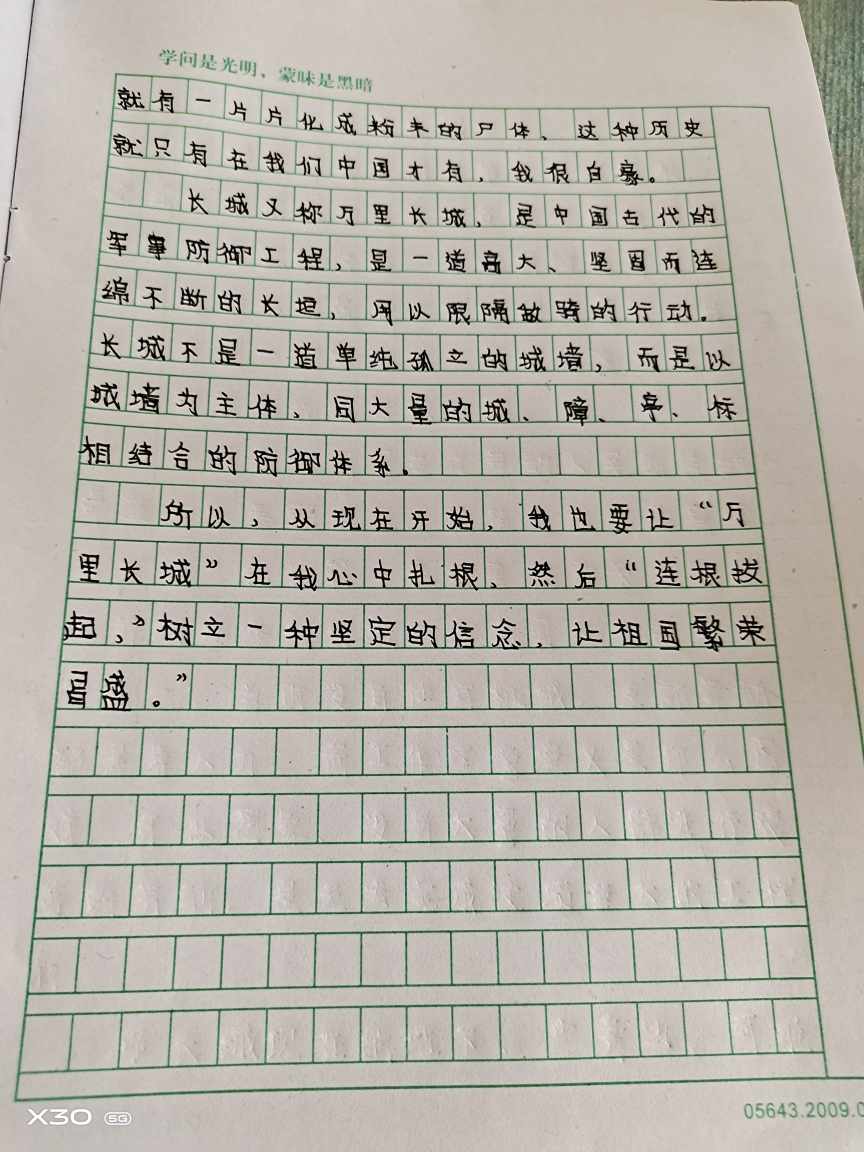 学问是光明、蒙昧是黑暗
就有一片片化成粉末的尸体、这种历史
就只有在我们中国才有,我很自豪。
长城又称万里长城,是中国古代的
军事防御工程,是一道高大、坚固而连
绵不断的长垣,用以限隔敌骑的行动。
长城不是一道单纯孤立的城墙,而是以
城墙为主体、同大量的城、障、亭、标
相结合的防御体系。
所以,从现在开始,我也要让“万
里长城”在我心中扎根、然后“连根拔
起,”树立一种坚定的信念,让祖国繁荣
昌盛。”
X30 5G
05643.2009.0